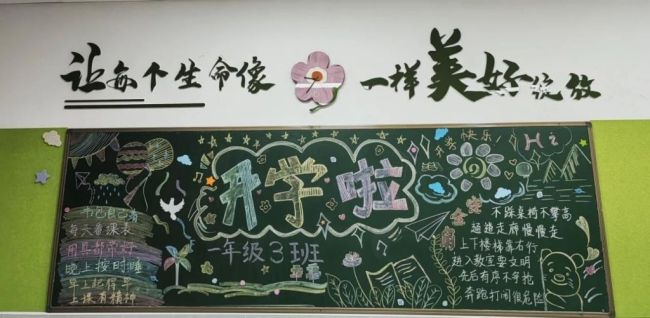 让每个生命像
一样美好绽放
快乐
Hi
开学啦
一年级3班
书包自己背
每天看课表
用具都带好
晚上按时睡
早上起得早
上课有精神
安全
不踩桌椅不攀高
过道走廊慢慢走
上下楼梯靠右行
进入教室要文明
先后有序不争抢
奔跑打闹很危险